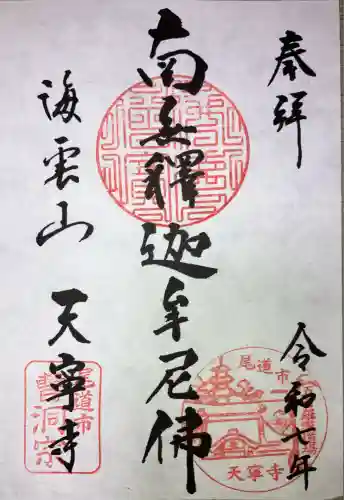 奉拝
令和七年
南無釋迦牟尼佛
海雲山
天寧寺
尾道市
天寧寺
尾道市
曹洞宗